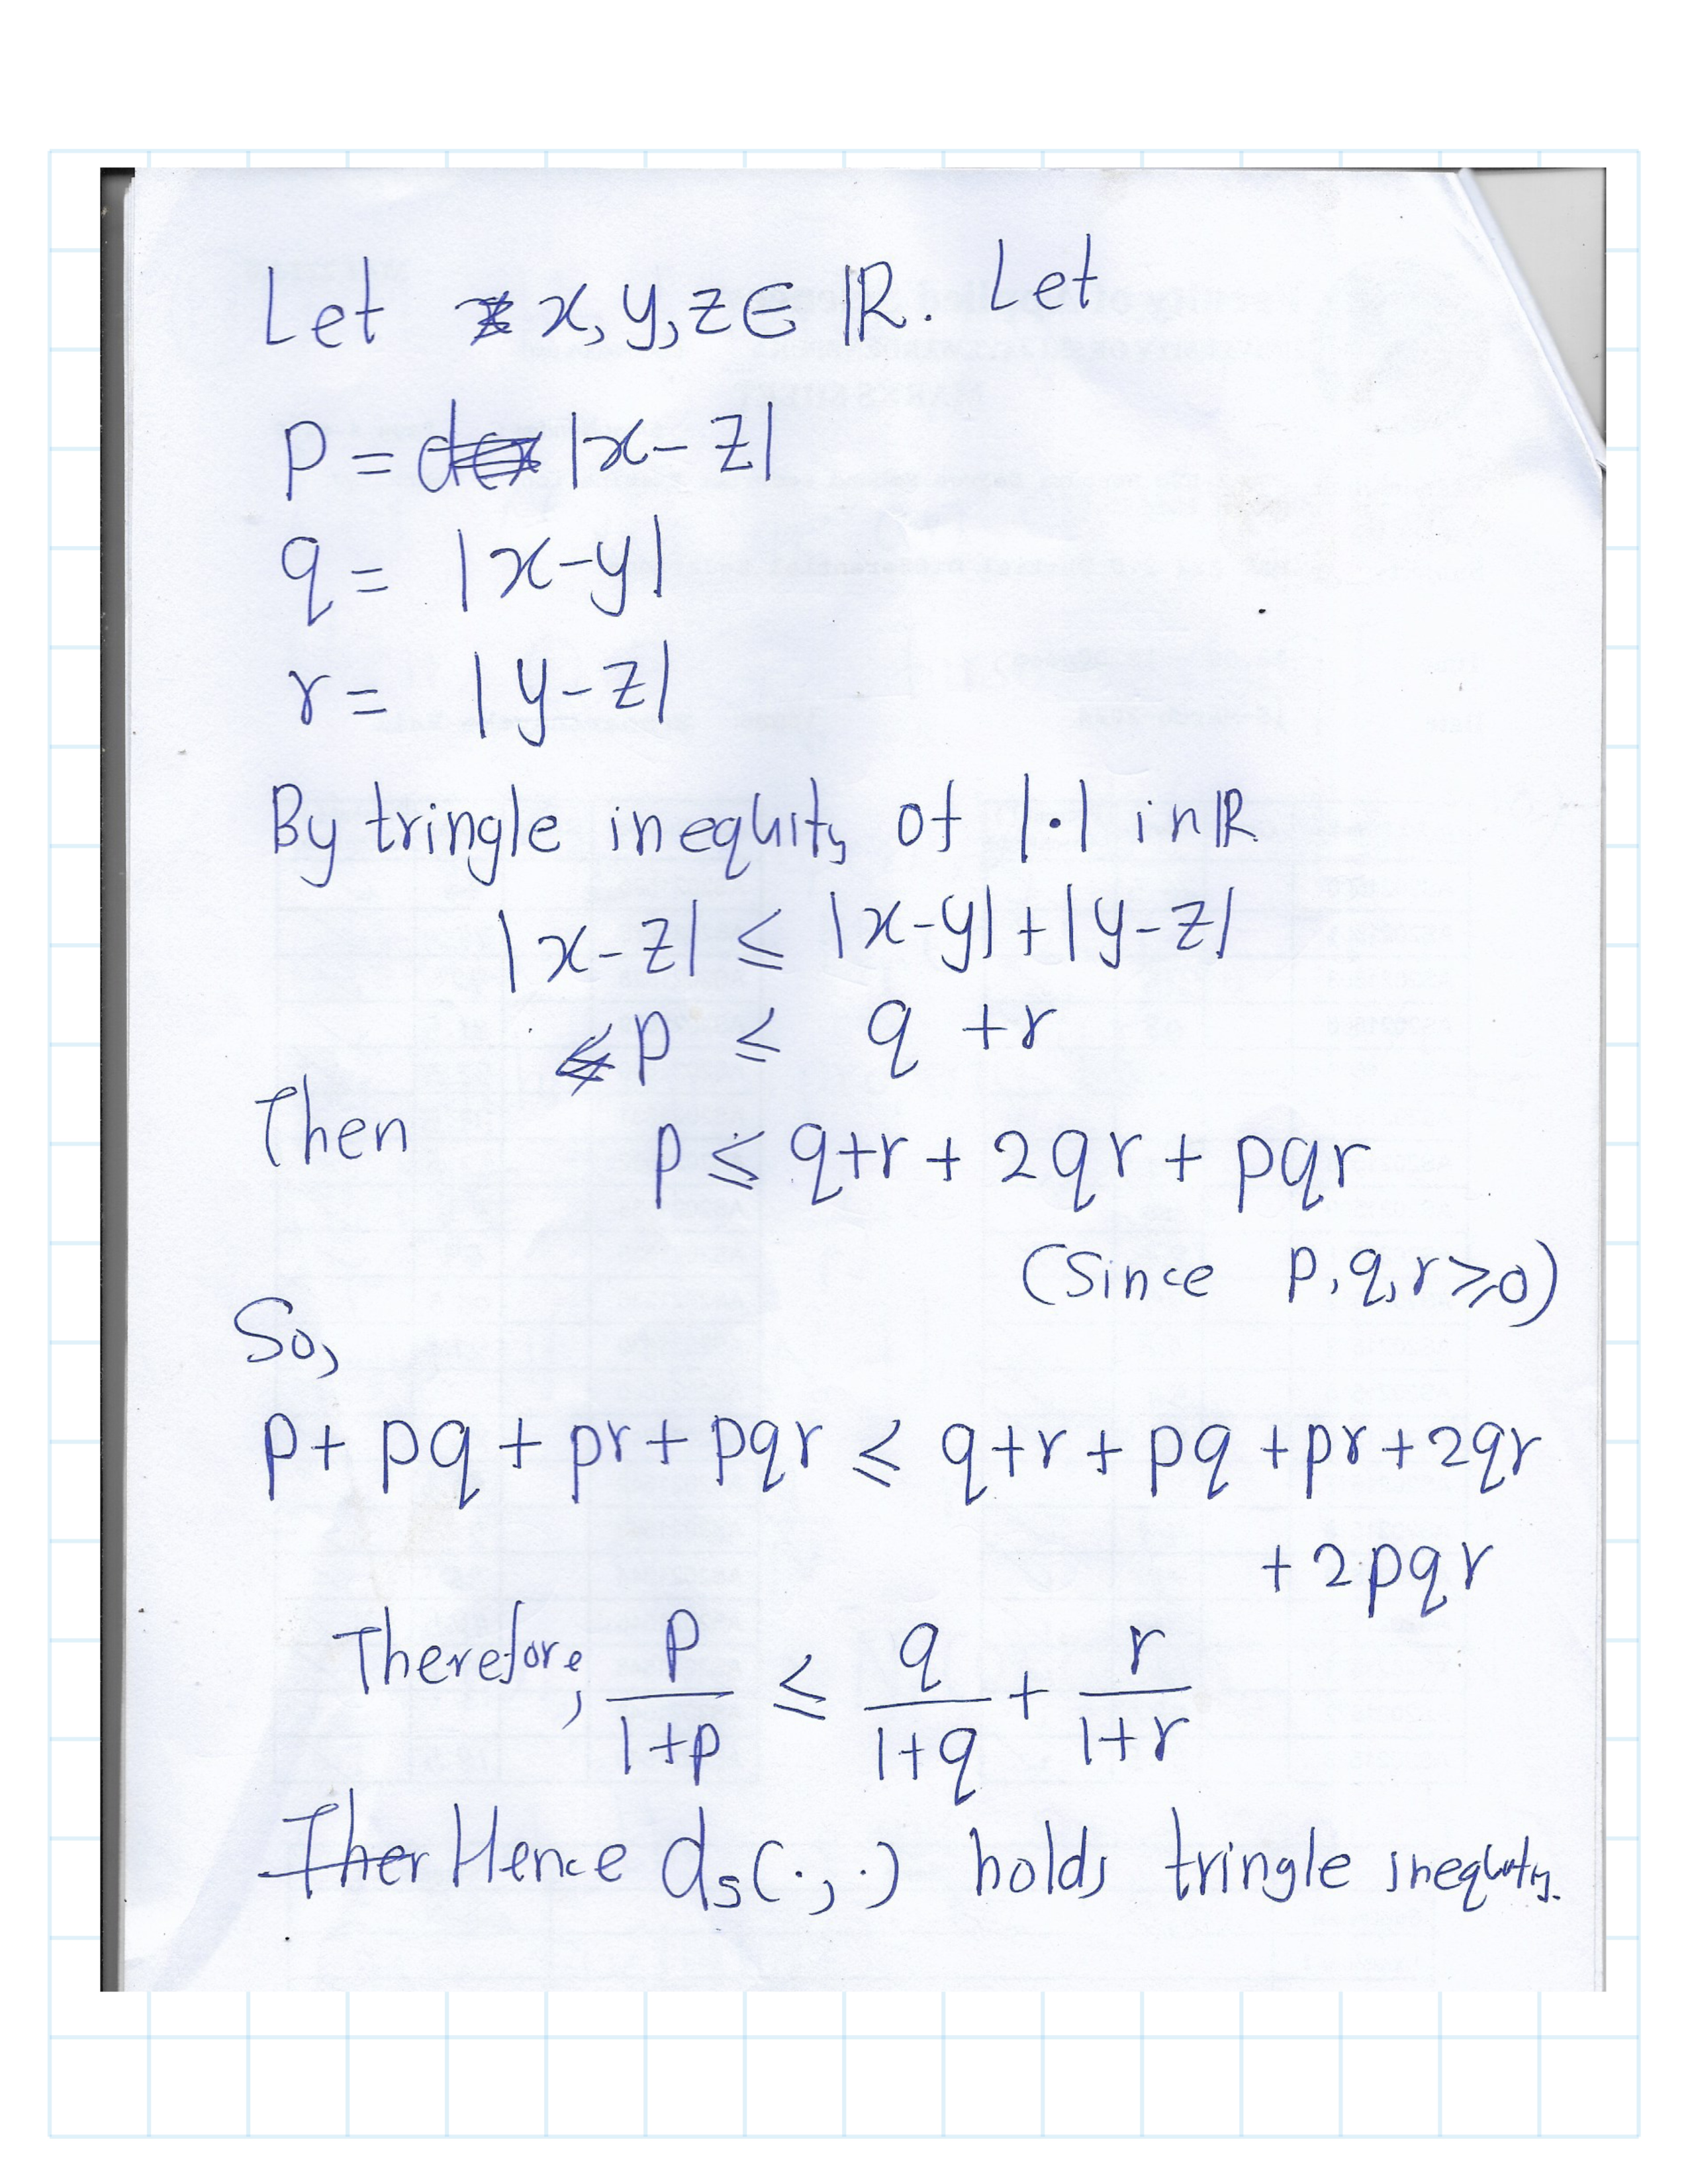 Let x, y, z ∈ ℝ. Let
p = |x - z|
q = |x - y|
r = |y - z|
By tringle inequlity of |·| in ℝ
|x - z| ≤ |x - y| + |y - z|
p ≤ q + r
Then
p ≤ q + r + 2qr + pqr
(Since p, q, r ≥ 0)
So,
p + pq + pr + pqr ≤ q + r + pq + pr + 2qr
+ 2pqr
Therefore, p/(1+p) ≤ q/(1+q) + r/(1+r)
Hence d_s(·, ·) holds tringle inequlity.